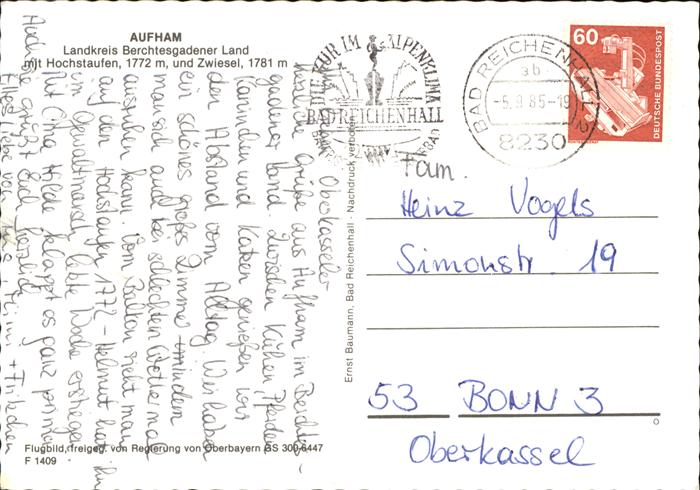 AUFHAM
Landkreis Berchtesgadener Land
mit Hochstaufen, 1772 m, und Zwiesel, 1781 m
DIE KUR IM ALPENKLIMA
BAD REICHENHALL
BAD REICHENHALL 2
ab
-5.9.85-19
8230
60
DEUTSCHE BUNDESPOST
Oberkasseler
Grüße aus Aufham im Berchtes-
gadener Land. Zwischen Kühen, Pferden
Kaninchen und Katzen genießen wir
den Abstand vom Alltag. Wir haben
ein schönes großes Zimmer, in dem
man sich auch bei schlechtem Wetter mal
ausruhen kann. Vom Balkon sieht man
auf den Hochstaufen 1772 - Helmut hat ihn
im Gewaltmarsch letzte Woche erstiegen
Mit Oma Hilde klappt es ganz prima
Auch sie grüßt Euch herzlich
Alles Liebe von
Ernst Baumann, Bad Reichenhall - Nachdruck verboten
Fam.
Heinz Vogels
Simonstr. 19
53 BONN 3
Oberkassel
Flugbild, freigeg. von Regierung von Oberbayern GS 300-6447
F 1409